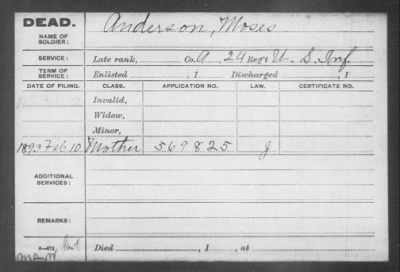 DEAD.
NAME OF SOLDIER: Anderson, Moses
SERVICE: Late rank, Co. A, 24 Reg't U. S. Inf
TERM OF SERVICE: Enlisted , 1 Discharged , 1
DATE OF FILING. CLASS. APPLICATION NO. LAW. CERTIFICATE NO.
Invalid,
Widow,
Minor,
1893 Feb 10 Mother 569825 J
ADDITIONAL SERVICES:
REMARKS:
Died , 1 , at